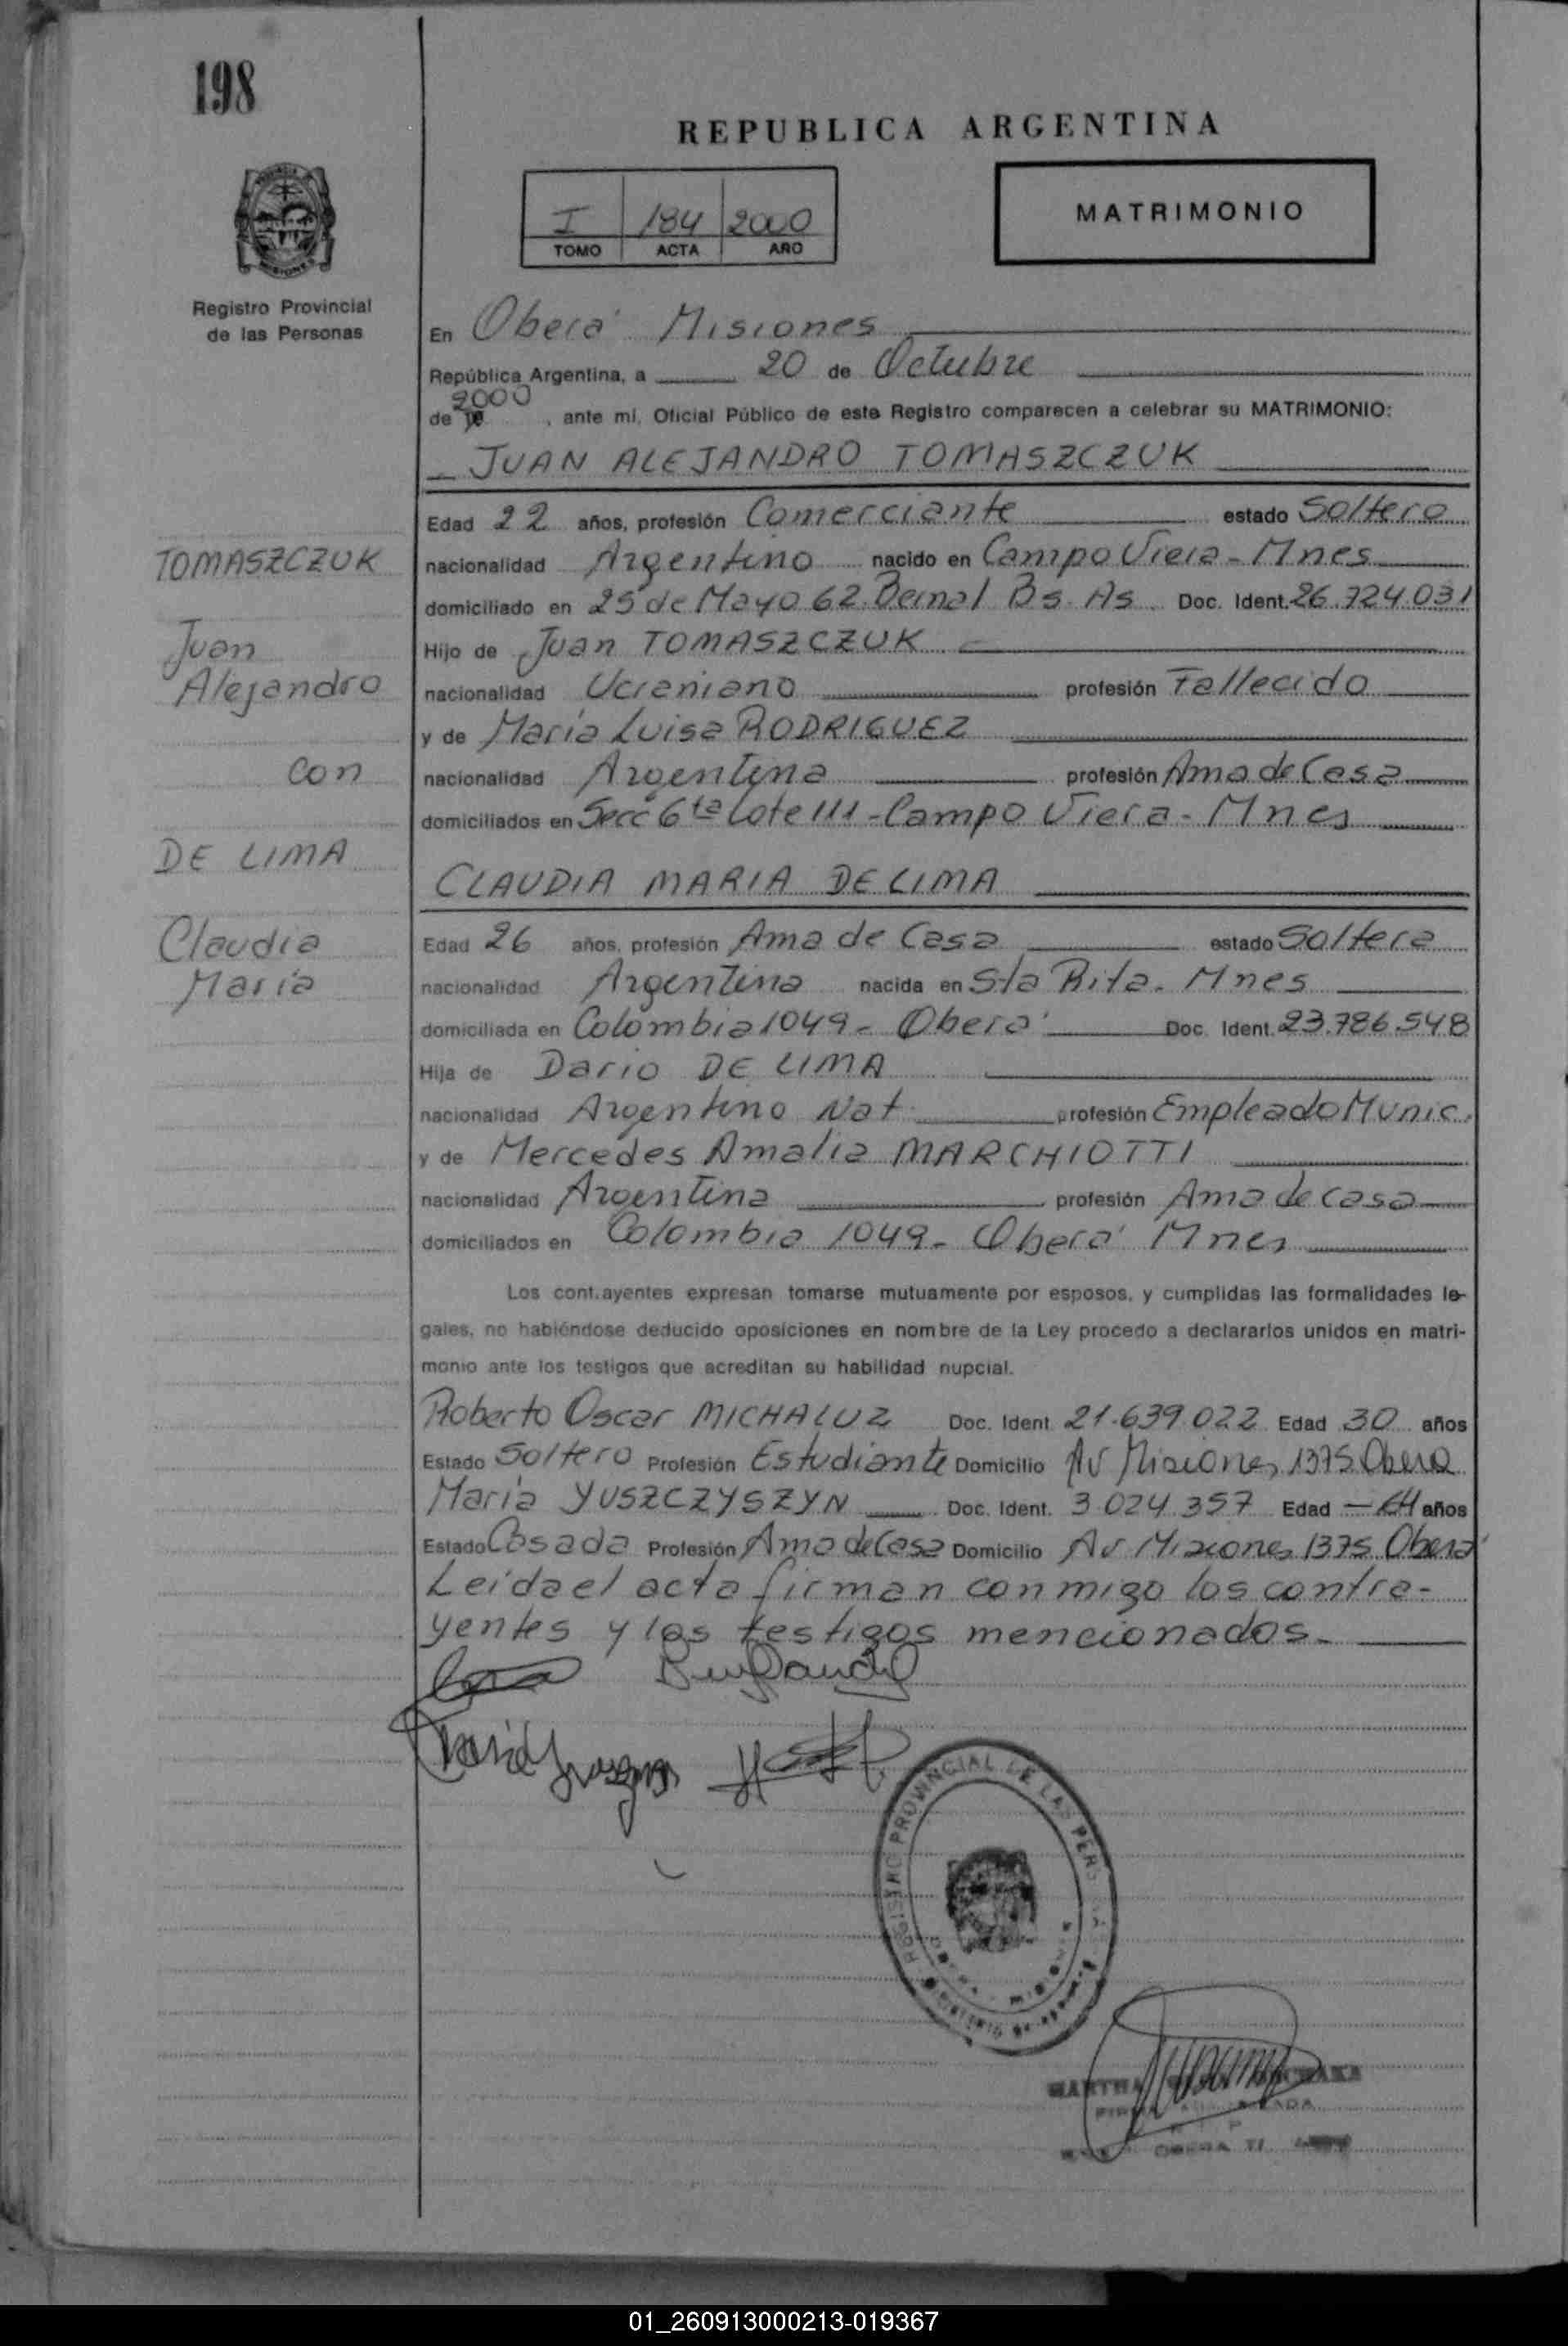 198
REPUBLICA ARGENTINA
I 184 2000
TOMO ACTA AÑO
MATRIMONIO
Registro Provincial
de las Personas
En Oberá Misiones
República Argentina, a 20 de Octubre
de 2000, ante mí, Oficial Público de este Registro comparecen a celebrar su MATRIMONIO:
JUAN ALEJANDRO TOMASZCZUK
Edad 22 años, profesión Comerciante estado Soltero
TOMASZCZUK
nacionalidad Argentino nacido en Campo Viera - Mnes
domiciliado en 25 de Mayo 62 Bernal Bs. As. Doc. Ident. 26.724.031
Juan
Hijo de Juan TOMASZCZUK
Alejandro
nacionalidad Ucraniano profesión Fallecido
y de María Luisa RODRIGUEZ
con
nacionalidad Argentina profesión Ama de Casa
domiciliados en Secc 6ta Lote 111 - Campo Viera - Mnes
DE LIMA
CLAUDIA MARIA DE LIMA
Claudia
Edad 26 años, profesión Ama de Casa estado Soltera
María
nacionalidad Argentina nacida en Sta Rita - Mnes
domiciliada en Colombia 1049 - Oberá Doc. Ident. 23.786.548
Hija de Dario DE LIMA
nacionalidad Argentino Nat. profesión Empleado Munic.
y de Mercedes Amalia MARCHIOTTI
nacionalidad Argentina profesión Ama de casa
domiciliados en Colombia 1049 - Oberá Mnes
Los cont.ayentes expresan tomarse mutuamente por esposos, y cumplidas las formalidades le-
gales, no habiéndose deducido oposiciones en nombre de la Ley procedo a declararlos unidos en matri-
monio ante los testigos que acreditan su habilidad nupcial.
Roberto Oscar MICHALUZ Doc. Ident. 21.639.022 Edad 30 años
Estado Soltero Profesión Estudiante Domicilio Av Misiones 1375 Oberá
María YUSZCZYSZYN Doc. Ident. 3.024.357 Edad años
Estado Casada Profesión Ama de Casa Domicilio Av Misiones 1375 Oberá
Leida el acta firman conmigo los contra-
yentes y los testigos mencionados.
REGISTRO PROVINCIAL DE LAS PERS
MARTHA
01_260913000213-019367